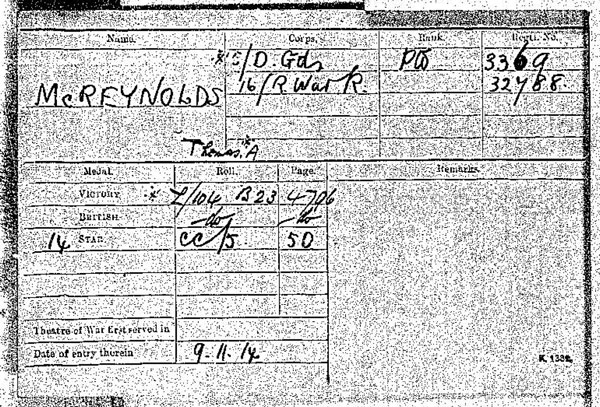 Name. Corps. Rank. Regtl. No.
McREYNOLDS * 5/D. Gds Pte 3369
16/R War R. 32788.
Thomas * A
Medal. Roll. Page. Remarks.
VICTORY * L/104 B23 4706
BRITISH -do- -do-
14 STAR CC/5 50
Theatre of War first served in
Date of entry therein 9.11.14
K. 1380.